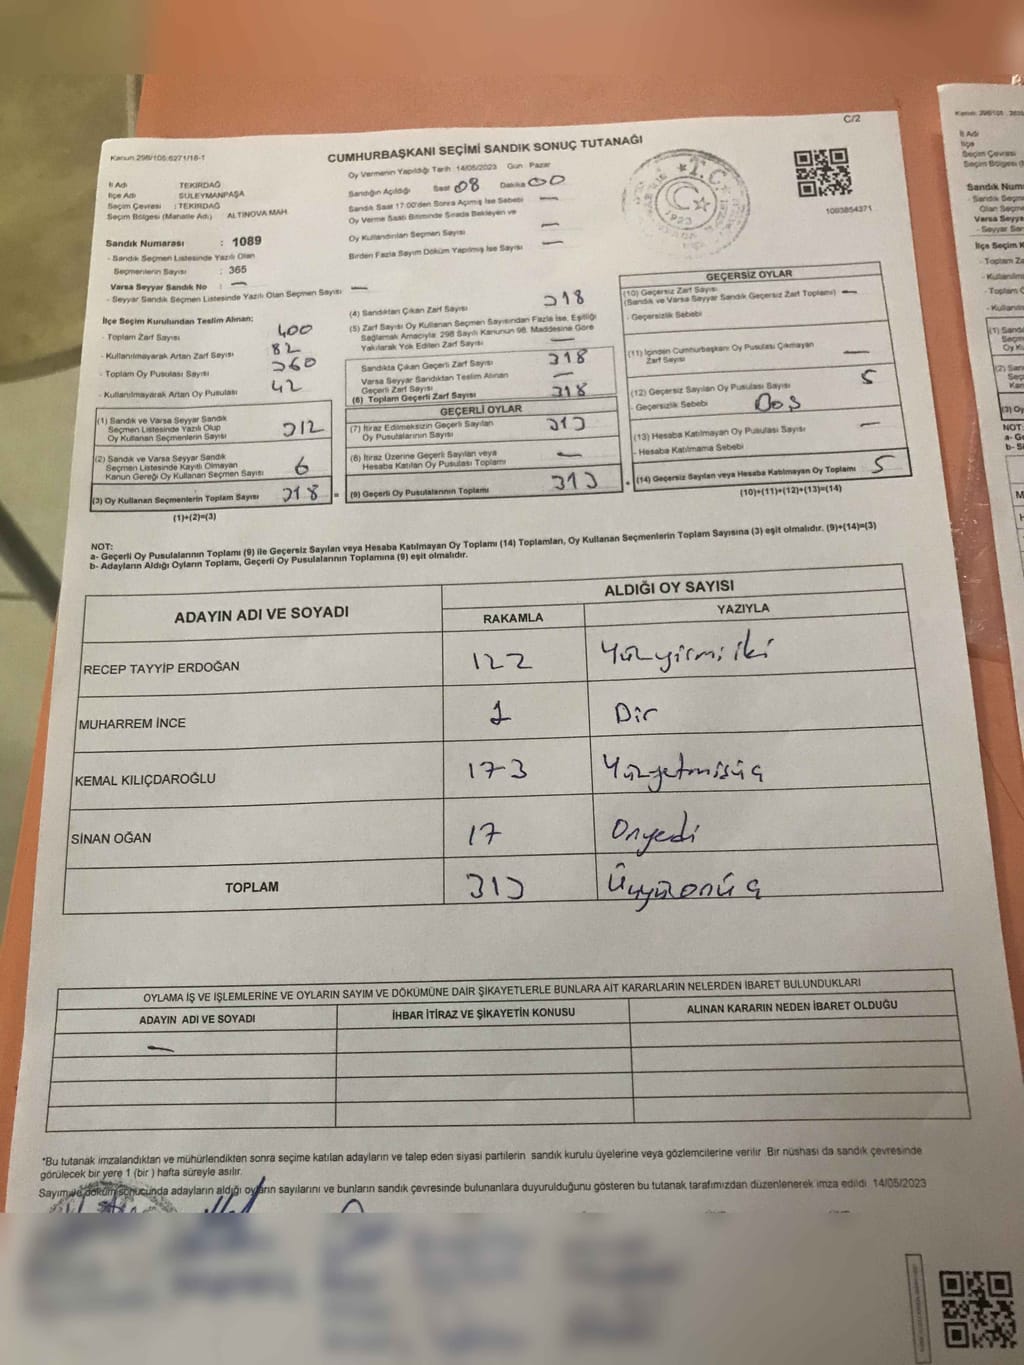 C/2
Kanun 298/105:6271/18-1
CUMHURBAŞKANI SEÇİMİ SANDIK SONUÇ TUTANAĞI
İl Adı TEKİRDAĞ
İlçe Adı SÜLEYMANPAŞA
Seçim Çevresi : TEKİRDAĞ
Seçim Bölgesi (Mahalle Adı) ALTINOVA MAH.
Sandık Numarası : 1089
- Sandık Seçmen Listesinde Yazılı Olan
Seçmenlerin Sayısı : 365
Varsa Seyyar Sandık No : —
- Seyyar Sandık Seçmen Listesinde Yazılı Olan Seçmen Sayısı —
Oy Vermenin Yapıldığı Tarih : 14/05/2023 Gün : Pazar
Sandığın Açıldığı Saat 08 Dakika 00
Sandık Saat 17:00'den Sonra Açılmış İse Sebebi —
Oy Verme Saati Bitiminde Sırada Bekleyen ve
Oy Kullandırılan Seçmen Sayısı —
Birden Fazla Sayım Döküm Yapılmış İse Sayısı —
T.C.
1923
1093854371
İlçe Seçim Kurulundan Teslim Alınan:
- Toplam Zarf Sayısı 400
- Kullanılmayarak Artan Zarf Sayısı 82
- Toplam Oy Pusulası Sayısı 360
- Kullanılmayarak Artan Oy Pusulası 42
(1) Sandık ve Varsa Seyyar Sandık
Seçmen Listesinde Yazılı Olup
Oy Kullanan Seçmenlerin Sayısı 312
(2) Sandık ve Varsa Seyyar Sandık
Seçmen Listesinde Kayıtlı Olmayan
Kanun Gereği Oy Kullanan Seçmen Sayısı 6
(3) Oy Kullanan Seçmenlerin Toplam Sayısı 318 =
(1)+(2)=(3)
(4) Sandıktan Çıkan Zarf Sayısı 318
(5) Zarf Sayısı Oy Kullanan Seçmen Sayısından Fazla İse, Eşitliği
Sağlamak Amacıyla 298 Sayılı Kanunun 98. Maddesine Göre
Yakılarak Yok Edilen Zarf Sayısı —
Sandıkta Çıkan Geçerli Zarf Sayısı 318
Varsa Seyyar Sandıktan Teslim Alınan
Geçerli Zarf Sayısı —
(6) Toplam Geçerli Zarf Sayısı 318
GEÇERLİ OYLAR
(7) İtiraz Edilmeksizin Geçerli Sayılan
Oy Pusulalarının Sayısı 313
(8) İtiraz Üzerine Geçerli Sayılan veya
Hesaba Katılan Oy Pusulası Toplamı —
(9) Geçerli Oy Pusulalarının Toplamı 313 +
GEÇERSİZ OYLAR
(10) Geçersiz Zarf Sayısı
(Sandık ve Varsa Seyyar Sandık Geçersiz Zarf Toplamı) —
- Geçersizlik Sebebi
(11) İçinden Cumhurbaşkanı Oy Pusulası Çıkmayan
Zarf Sayısı —
(12) Geçersiz Sayılan Oy Pusulası Sayısı 5
- Geçersizlik Sebebi Boş
(13) Hesaba Katılmayan Oy Pusulası Sayısı —
- Hesaba Katılmama Sebebi
(14) Geçersiz Sayılan veya Hesaba Katılmayan Oy Toplamı 5
(10)+(11)+(12)+(13)=(14)
NOT:
a- Geçerli Oy Pusulalarının Toplamı (9) ile Geçersiz Sayılan veya Hesaba Katılmayan Oy Toplamı (14) Toplamları, Oy Kullanan Seçmenlerin Toplam Sayısına (3) eşit olmalıdır. (9)+(14)=(3)
b- Adayların Aldığı Oyların Toplamı, Geçerli Oy Pusulalarının Toplamına (9) eşit olmalıdır.
ADAYIN ADI VE SOYADI
ALDIĞI OY SAYISI
RAKAMLA YAZIYLA
RECEP TAYYİP ERDOĞAN 122 Yüzyirmiiki
MUHARREM İNCE 1 Bir
KEMAL KILIÇDAROĞLU 173 Yüzyetmişüç
SİNAN OĞAN 17 Onyedi
TOPLAM 313 Üçyüzonüç
OYLAMA İŞ VE İŞLEMLERİNE VE OYLARIN SAYIM VE DÖKÜMÜNE DAİR ŞİKAYETLERLE BUNLARA AİT KARARLARIN NELERDEN İBARET BULUNDUKLARI
ADAYIN ADI VE SOYADI İHBAR İTİRAZ VE ŞİKAYETİN KONUSU ALINAN KARARIN NEDEN İBARET OLDUĞU
—
*Bu tutanak imzalandıktan ve mühürlendikten sonra seçime katılan adayların ve talep eden siyasi partilerin sandık kurulu üyelerine veya gözlemcilerine verilir. Bir nüshası da sandık çevresinde
görülecek bir yere 1 (bir) hafta süreyle asılır.
Sayım ve döküm sonucunda adayların aldığı oyların sayılarını ve bunların sandık çevresinde bulunanlara duyurulduğunu gösteren bu tutanak tarafımızdan düzenlenerek imza edildi. 14/05/2023
İl Adı
İlçe
Seçim Çevresi
Seçim Bölgesi
Sandık Num